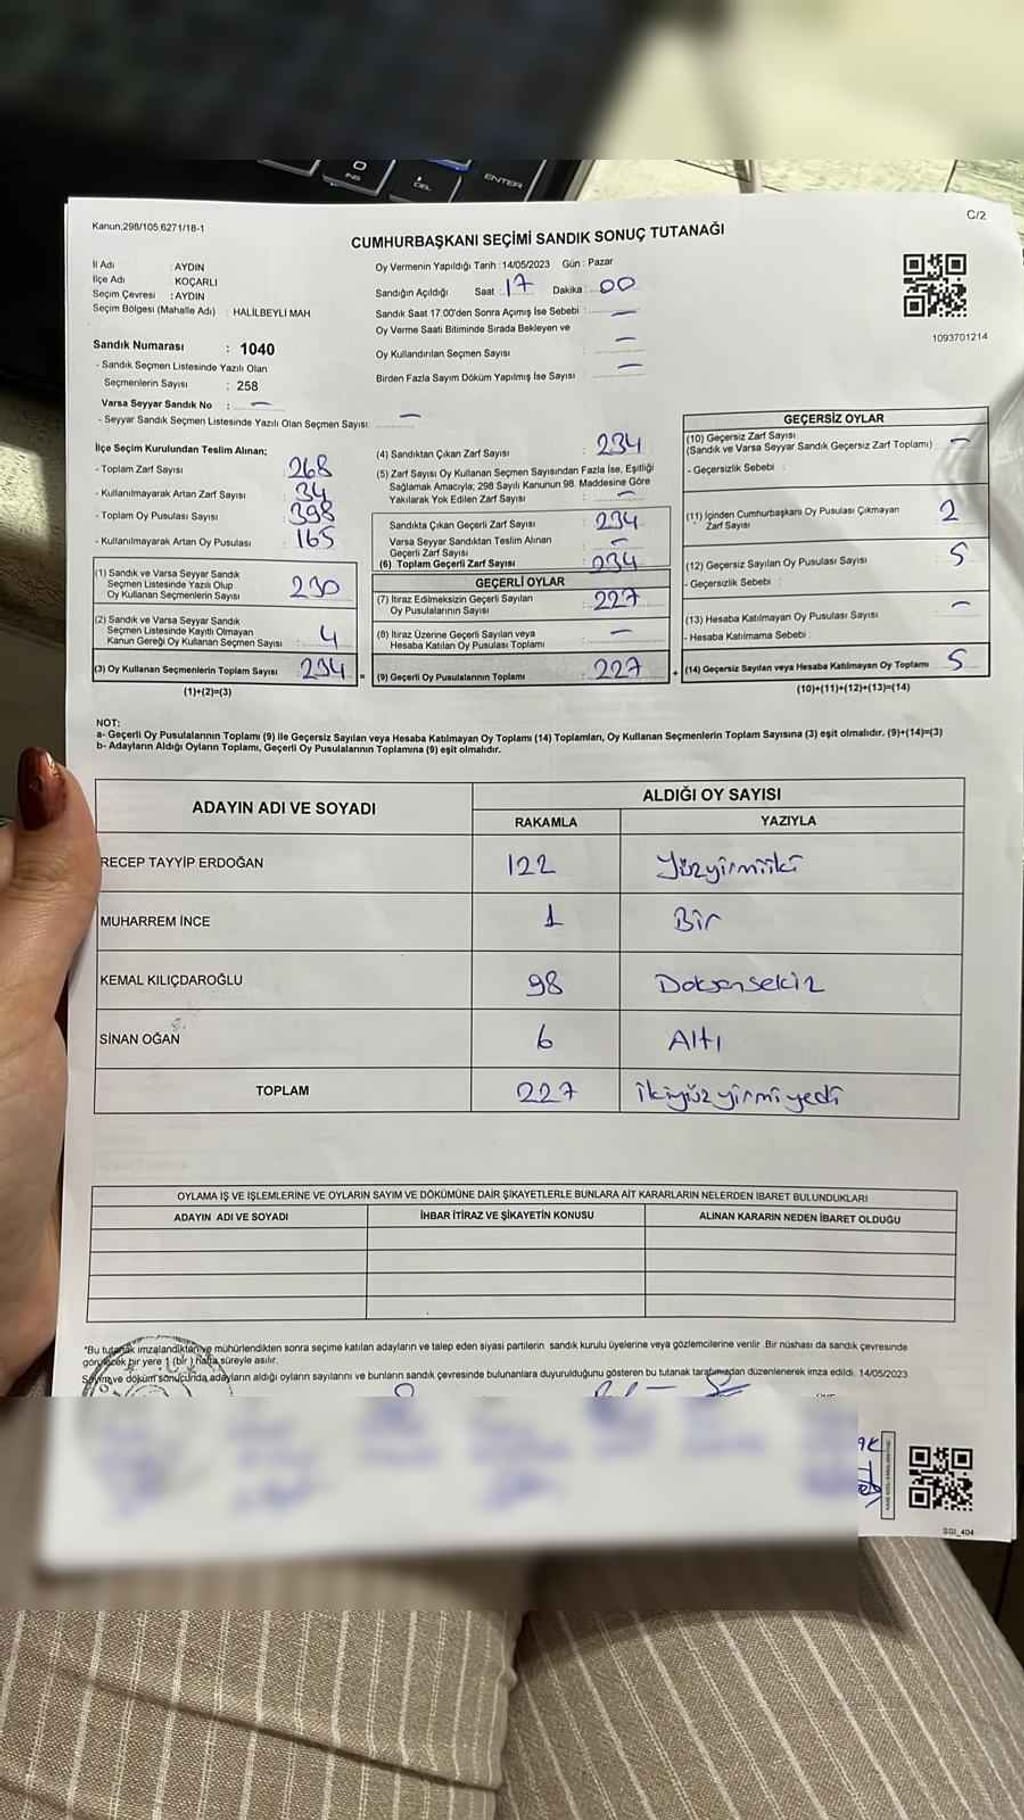 INS
DEL
ENTER
Kanun:298/105,6271/18-1
C/2
CUMHURBAŞKANI SEÇİMİ SANDIK SONUÇ TUTANAĞI
İl Adı : AYDIN
İlçe Adı : KOÇARLI
Seçim Çevresi : AYDIN
Seçim Bölgesi (Mahalle Adı) : HALİLBEYLİ MAH
Sandık Numarası : 1040
- Sandık Seçmen Listesinde Yazılı Olan
Seçmenlerin Sayısı : 258
Varsa Seyyar Sandık No : —
- Seyyar Sandık Seçmen Listesinde Yazılı Olan Seçmen Sayısı: —
Oy Vermenin Yapıldığı Tarih : 14/05/2023 Gün : Pazar
Sandığın Açıldığı Saat : 17 Dakika : 00
Sandık Saat 17.00'den Sonra Açımış İse Sebebi : —
Oy Verme Saati Bitiminde Sırada Bekleyen ve
Oy Kullandırılan Seçmen Sayısı : —
Birden Fazla Sayım Döküm Yapılmış İse Sayısı : —
1093701214
İlçe Seçim Kurulundan Teslim Alınan;
- Toplam Zarf Sayısı : 268
- Kullanılmayarak Artan Zarf Sayısı : 34
- Toplam Oy Pusulası Sayısı : 398
- Kullanılmayarak Artan Oy Pusulası : 165
(1) Sandık ve Varsa Seyyar Sandık
Seçmen Listesinde Yazılı Olup
Oy Kullanan Seçmenlerin Sayısı : 230
(2) Sandık ve Varsa Seyyar Sandık
Seçmen Listesinde Kayıtlı Olmayan
Kanun Gereği Oy Kullanan Seçmen Sayısı : 4
(3) Oy Kullanan Seçmenlerin Toplam Sayısı : 234 =
(1)+(2)=(3)
(4) Sandıktan Çıkan Zarf Sayısı : 234
(5) Zarf Sayısı Oy Kullanan Seçmen Sayısından Fazla İse, Eşitliği
Sağlamak Amacıyla; 298 Sayılı Kanunun 98. Maddesine Göre
Yakılarak Yok Edilen Zarf Sayısı : —
Sandıkta Çıkan Geçerli Zarf Sayısı : 234
Varsa Seyyar Sandıktan Teslim Alınan
Geçerli Zarf Sayısı : —
(6) Toplam Geçerli Zarf Sayısı : 234
GEÇERLİ OYLAR
(7) İtiraz Edilmeksizin Geçerli Sayılan
Oy Pusulalarının Sayısı : 227
(8) İtiraz Üzerine Geçerli Sayılan veya
Hesaba Katılan Oy Pusulası Toplamı : —
(9) Geçerli Oy Pusulalarının Toplamı : 227 +
GEÇERSİZ OYLAR
(10) Geçersiz Zarf Sayısı
(Sandık ve Varsa Seyyar Sandık Geçersiz Zarf Toplamı) : —
- Geçersizlik Sebebi :
(11) İçinden Cumhurbaşkanı Oy Pusulası Çıkmayan
Zarf Sayısı : 2
(12) Geçersiz Sayılan Oy Pusulası Sayısı : 5
- Geçersizlik Sebebi :
(13) Hesaba Katılmayan Oy Pusulası Sayısı : —
- Hesaba Katılmama Sebebi :
(14) Geçersiz Sayılan veya Hesaba Katılmayan Oy Toplamı : 5
(10)+(11)+(12)+(13)=(14)
NOT:
a- Geçerli Oy Pusulalarının Toplamı (9) ile Geçersiz Sayılan veya Hesaba Katılmayan Oy Toplamı (14) Toplamları, Oy Kullanan Seçmenlerin Toplam Sayısına (3) eşit olmalıdır. (9)+(14)=(3)
b- Adayların Aldığı Oyların Toplamı, Geçerli Oy Pusulalarının Toplamına (9) eşit olmalıdır.
ADAYIN ADI VE SOYADI ALDIĞI OY SAYISI
RAKAMLA YAZIYLA
RECEP TAYYİP ERDOĞAN 122 Yüzyirmiiki
MUHARREM İNCE 1 Bir
KEMAL KILIÇDAROĞLU 98 Doksansekiz
SİNAN OĞAN 6 Altı
TOPLAM 227 ikiyüzyirmiyedi
OYLAMA İŞ VE İŞLEMLERİNE VE OYLARIN SAYIM VE DÖKÜMÜNE DAİR ŞİKAYETLERLE BUNLARA AİT KARARLARIN NELERDEN İBARET BULUNDUKLARI
ADAYIN ADI VE SOYADI İHBAR İTİRAZ VE ŞİKAYETİN KONUSU ALINAN KARARIN NEDEN İBARET OLDUĞU
*Bu tutanak imzalandıktan ve mühürlendikten sonra seçime katılan adayların ve talep eden siyasi partilerin sandık kurulu üyelerine veya gözlemcilerine verilir. Bir nüshası da sandık çevresinde
görülecek bir yere 1 (bir ) hafta süreyle asılır.
Sayım ve döküm sonucunda adayların aldığı oyların sayılarını ve bunların sandık çevresinde bulunanlara duyurulduğunu gösteren bu tutanak tarafımızdan düzenlenerek imza edildi. 14/05/2023
SGI_404